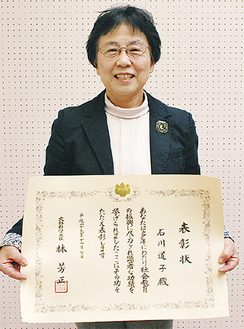 表彰状
石川道子殿
あなたは多年にわたり社会教育
の振興に尽力され顕著な功績を
挙げられました ここにその功を
たたえ表彰します
文部科学大臣 林芳正